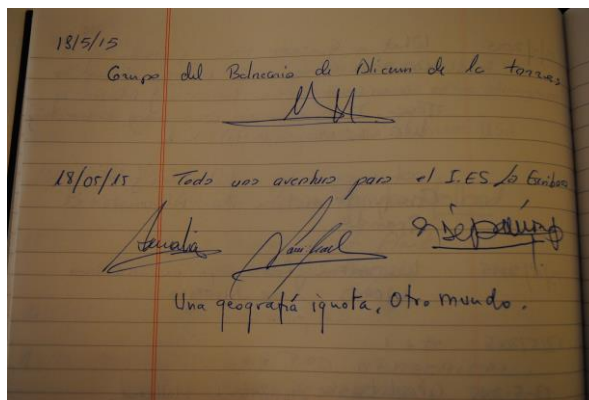 18/5/15
Grupo del Balneario de Alicun de la torres
18/05/15 Toda una aventura para el I.ES. La
Amalia
Una geografía ignota, Otro mundo.